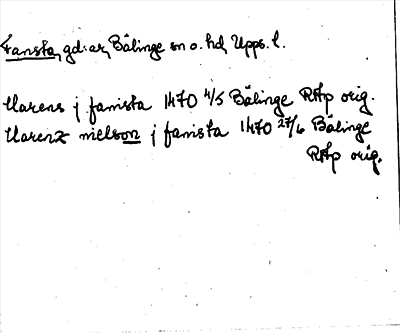 Fansta, gd:ar, Bälinge sn o. hd, Upps. l.
Marens j fanista 1470 4/5 Bälinge RAp orig.
Marenz nielson j fanista 1470 27/6 Bälinge
RAp orig.